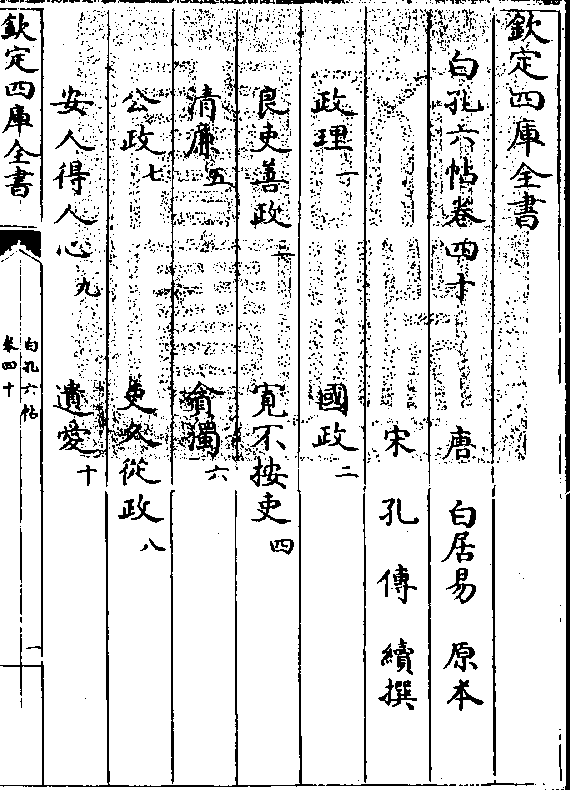 欽定四庫全書
白孔六帖卷四十
唐 白居易 原本
宋 孔傳 續撰
政理一 國政二
良吏善政三 寛不按吏四
清廉五 貪濁六
公政七 更久從政八
安人得人心九 遺愛十
欽定四庫全書
白孔六帖
卷四十
一